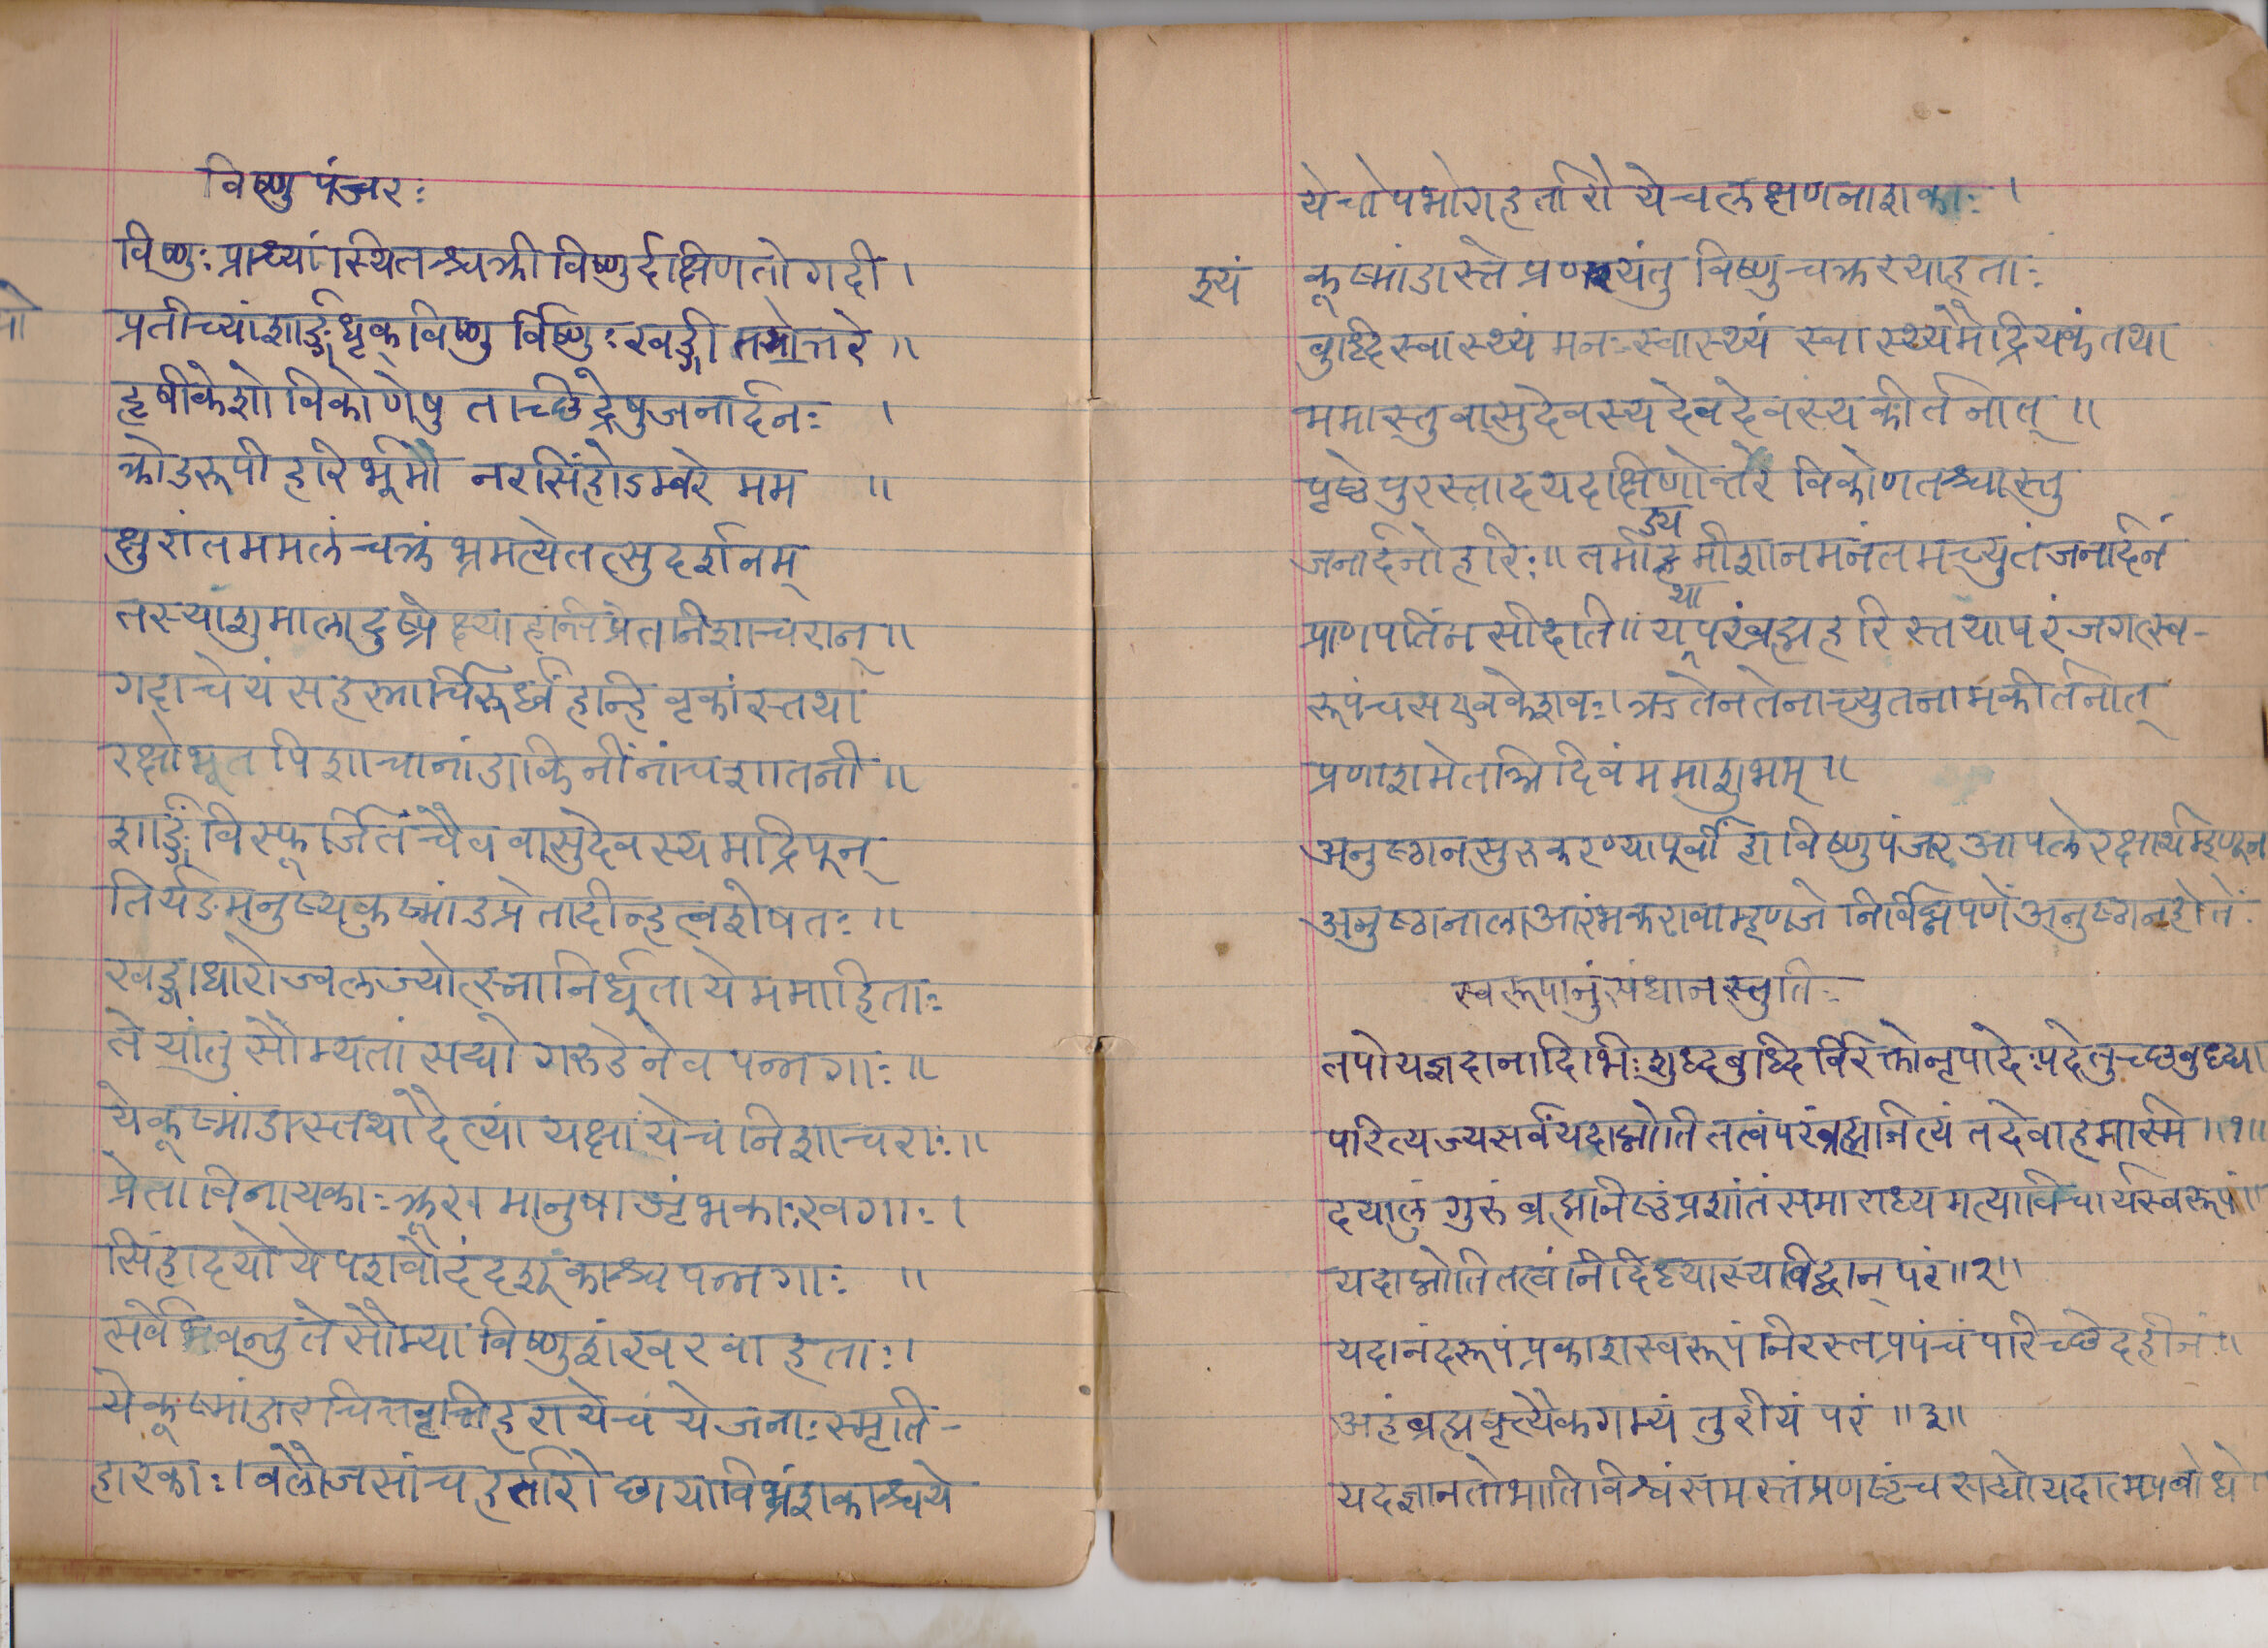 विष्णु पंजरः
विष्णुः प्राच्यां स्थितश्चक्री विष्णुर्दक्षिणतो गदी ।
प्रतीच्यां शार्ङ्गधृक् विष्णु र्विष्णुः खड्गी तथोत्तरे ॥
हृषीकेशो विकोणेषु तच्छिद्रेषु जनार्दनः ।
क्रोडरूपी हरिर्भूमौ नरसिंहोऽम्बरे मम ॥
क्षुरांतममलं चक्रं भ्रमत्येतत्सुदर्शनम्
तस्यांशुमाला दुष्प्रेक्ष्या हन्ति प्रेतनिशाचरान् ॥
गदा चेयं सहस्रार्चिरूर्ध्वं हन्ति वृकांस्तथा
रक्षोभूत पिशाचानां डाकिनीनां च शातनी ॥
शार्ङ्गं विस्फूर्जितं चैव वासुदेवस्य मद्रिपून्
तिर्यङमनुष्यकुष्मांड प्रेतादीन्हत्वशेषतः ॥
खड्गधारोज्वलज्योत्स्नानिर्धूता ये ममाहिताः
ते यांतु सौम्यतां सद्यो गरुडेनेव पन्नगाः ॥
ये कूष्मांडास्तथा दैत्या यक्षा ये च निशाचराः ॥
प्रेता विनायकाः क्रूरा मानुषा जृंभकाः खगाः ।
सिंहादयो ये पशवो दंदशूकाश्च पन्नगाः ॥
सर्वे भवन्तु ते सौम्या विष्णुशंखरवाहताः ।
ये कूष्मांडाश्चित्तवृत्तिहरा ये च ये जनाः स्मृति-
हारकाः । बलौजसां च हर्तारो छायाविभ्रंशकाश्च ये
ये चोपभोगहर्तारो ये च लक्षणनाशकाः ।
श्यं कूष्मांडास्ते प्रणश्यंतु विष्णुचक्ररयाहताः
बुद्धिस्वास्थ्यं मनःस्वास्थ्यं स्वास्थ्यमैंद्रियकं तथा
ममास्तु वासुदेवस्य देवदेवस्य कीर्तनात् ॥
पृष्ठे पुरस्तादथ दक्षिणोत्तरे विकोणतश्चास्तु
जनार्दनो हरिः ॥ तमीड्यमीशानमनंतमच्युतं जनार्दनं
प्राणपतिं न सीदति ॥ यथा परंब्रह्म हरिस्तथा परं जगत्स्व-
रूपं च स एव केशवः । ऋतेन तेनाच्युतनामकीर्तनात्
प्रणाशमेतत्त्रिदिवं ममाशुभम् ॥
अनुष्ठान सुरु करण्यापूर्वी हा विष्णुपंजर आपले रक्षार्थ म्हणून
अनुष्ठानाला आरंभ करावा म्हणजे निर्विघ्नपणें अनुष्ठान होतें.
स्वरूपानुसंधान स्तुतिः
तपोयज्ञदानादिभिः शुद्धबुद्धिर्विरक्तो नृपादेः पदे तुच्छबुध्या
परित्यज्य सर्वं यदाप्नोति तत्वं परं ब्रह्म नित्यं तदेवाहमस्मि ॥१॥
दयालुं गुरुं ब्रह्मनिष्ठं प्रशांतं समाराध्य मत्या विचार्य स्वरूपं ॥
यदाप्नोति तत्वं निदिध्यास्य विद्वान् परं ॥२॥
यदानंदरूपं प्रकाशस्वरूपं निरस्तप्रपंचं परिच्छेदहीनं ॥
अहं ब्रह्मवृत्त्यैकगम्यं तुरीयं परं ॥३॥
यदज्ञानतो भाति विश्वं समस्तं प्रणष्टं च सद्यो यदात्मप्रबोधे